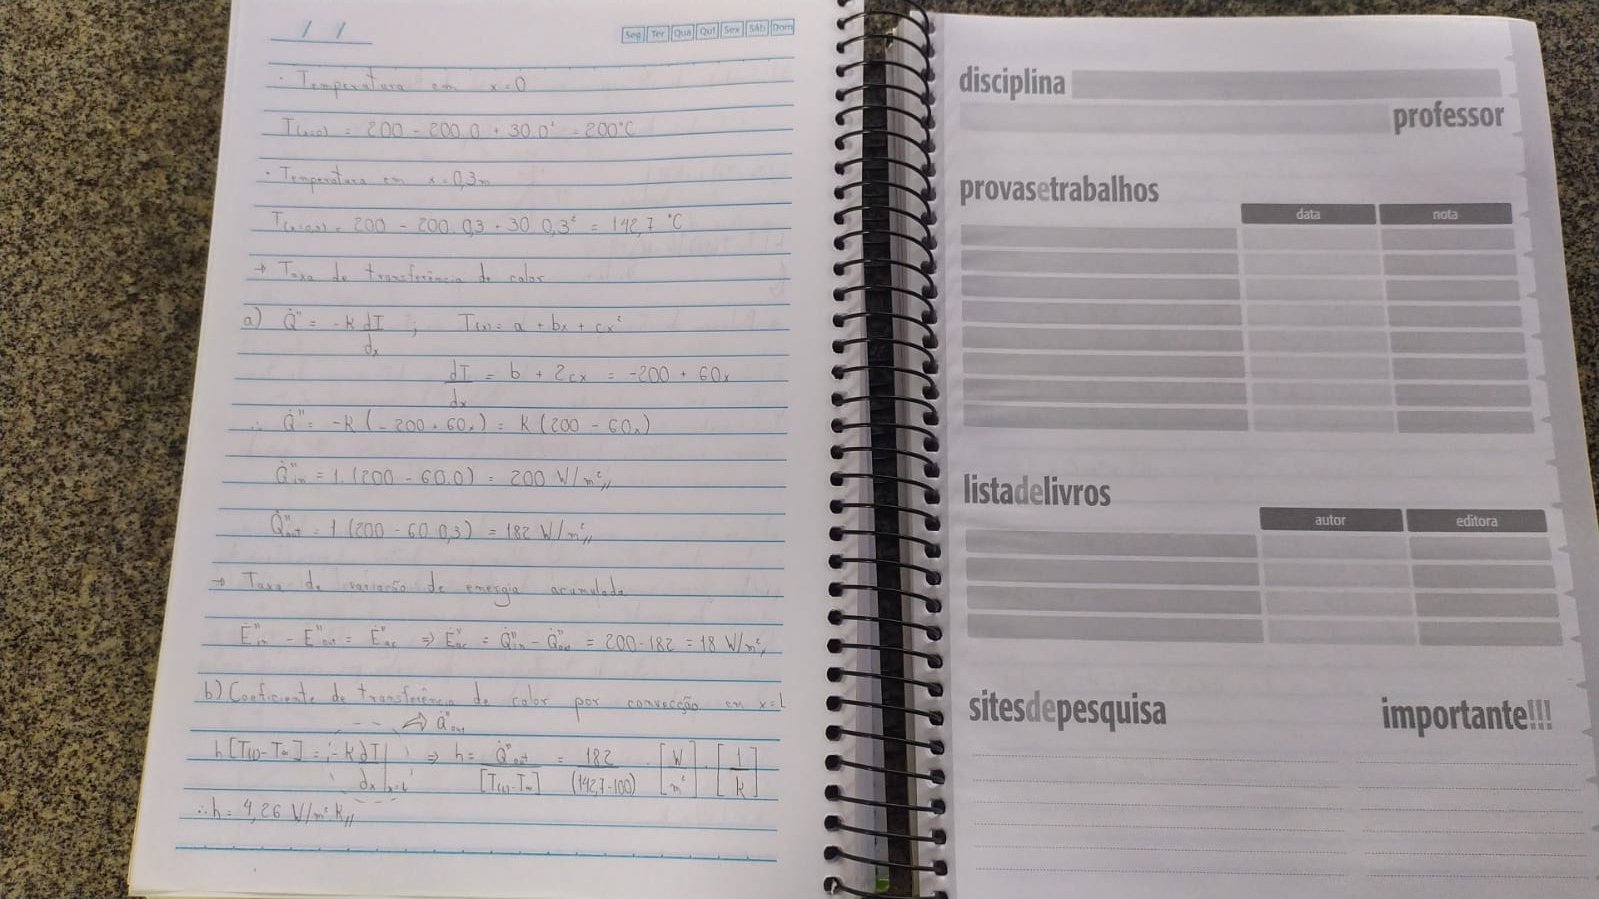 / /
Seg Ter Qua Qui Sex Sáb Dom
· Temperatura em x=0
T(x=0) = 200 - 200.0 + 30.0² = 200°C
· Temperatura em x=0,3m
T(x=0,3) = 200 - 200.0,3 + 30.0,3² = 142,7 °C
→ Taxa de transferência de calor
a) Q̇" = -k dT/dx ; T(x) = a + bx + cx²
dT/dx = b + 2cx = -200 + 60x
∴ Q̇" = -k(-200+60x) = k(200 - 60x)
Q̇"in = 1.(200 - 60.0) = 200 W/m²//
Q̇"out = 1.(200 - 60.0,3) = 182 W/m²//
→ Taxa de variação de energia acumulada
Ė"in - Ė"out = Ė"ac ⇒ Ė"ac = Q̇"in - Q̇"out = 200-182 = 18 W/m²//
b) Coeficiente de transferência de calor por convecção em x=L
⇒ Q̇"out
h[T(L)-T∞] = -k dT/dx|x=L ⇒ h = Q̇"out/[T(L)-T∞] = 182/(142,7-100) · [W/m²] · [1/k]
∴ h = 4,26 W/m²k//
disciplina
professor
provasetrabalhos
data nota
listadelivros
autor editora
sitesdepesquisa importante!!!